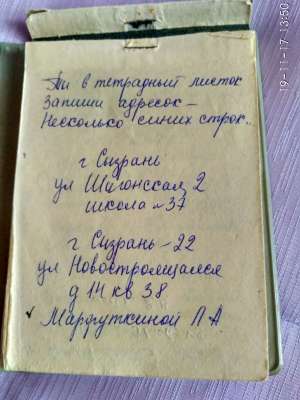 Ты в тетрадный листок
Запиши адресок –
Несколько синих строк..
г Сызрань
ул Шигонская, 2
школа № 37
г Сызрань – 22
ул Новостроящаяся
д 14 кв 38
✓ Марфуткиной Л А
19-11-17 13:50